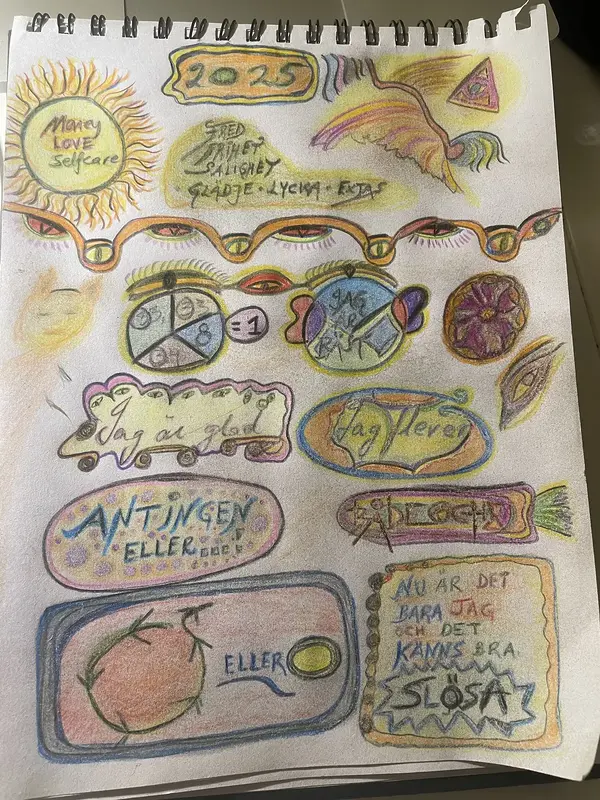 2025
Money
LOVE
Selfcare
FRED
FRIHET
SALIGHET
GLÄDJE · LYCKA · EXTAS
8
=1
JAG
ÄR
Jag är glad
Jag lever
ANTINGEN
ELLER
BÅDE OCH
ELLER
NU ÄR DET
BARA JAG
OCH DET
KÄNNS BRA.
SLÖSA